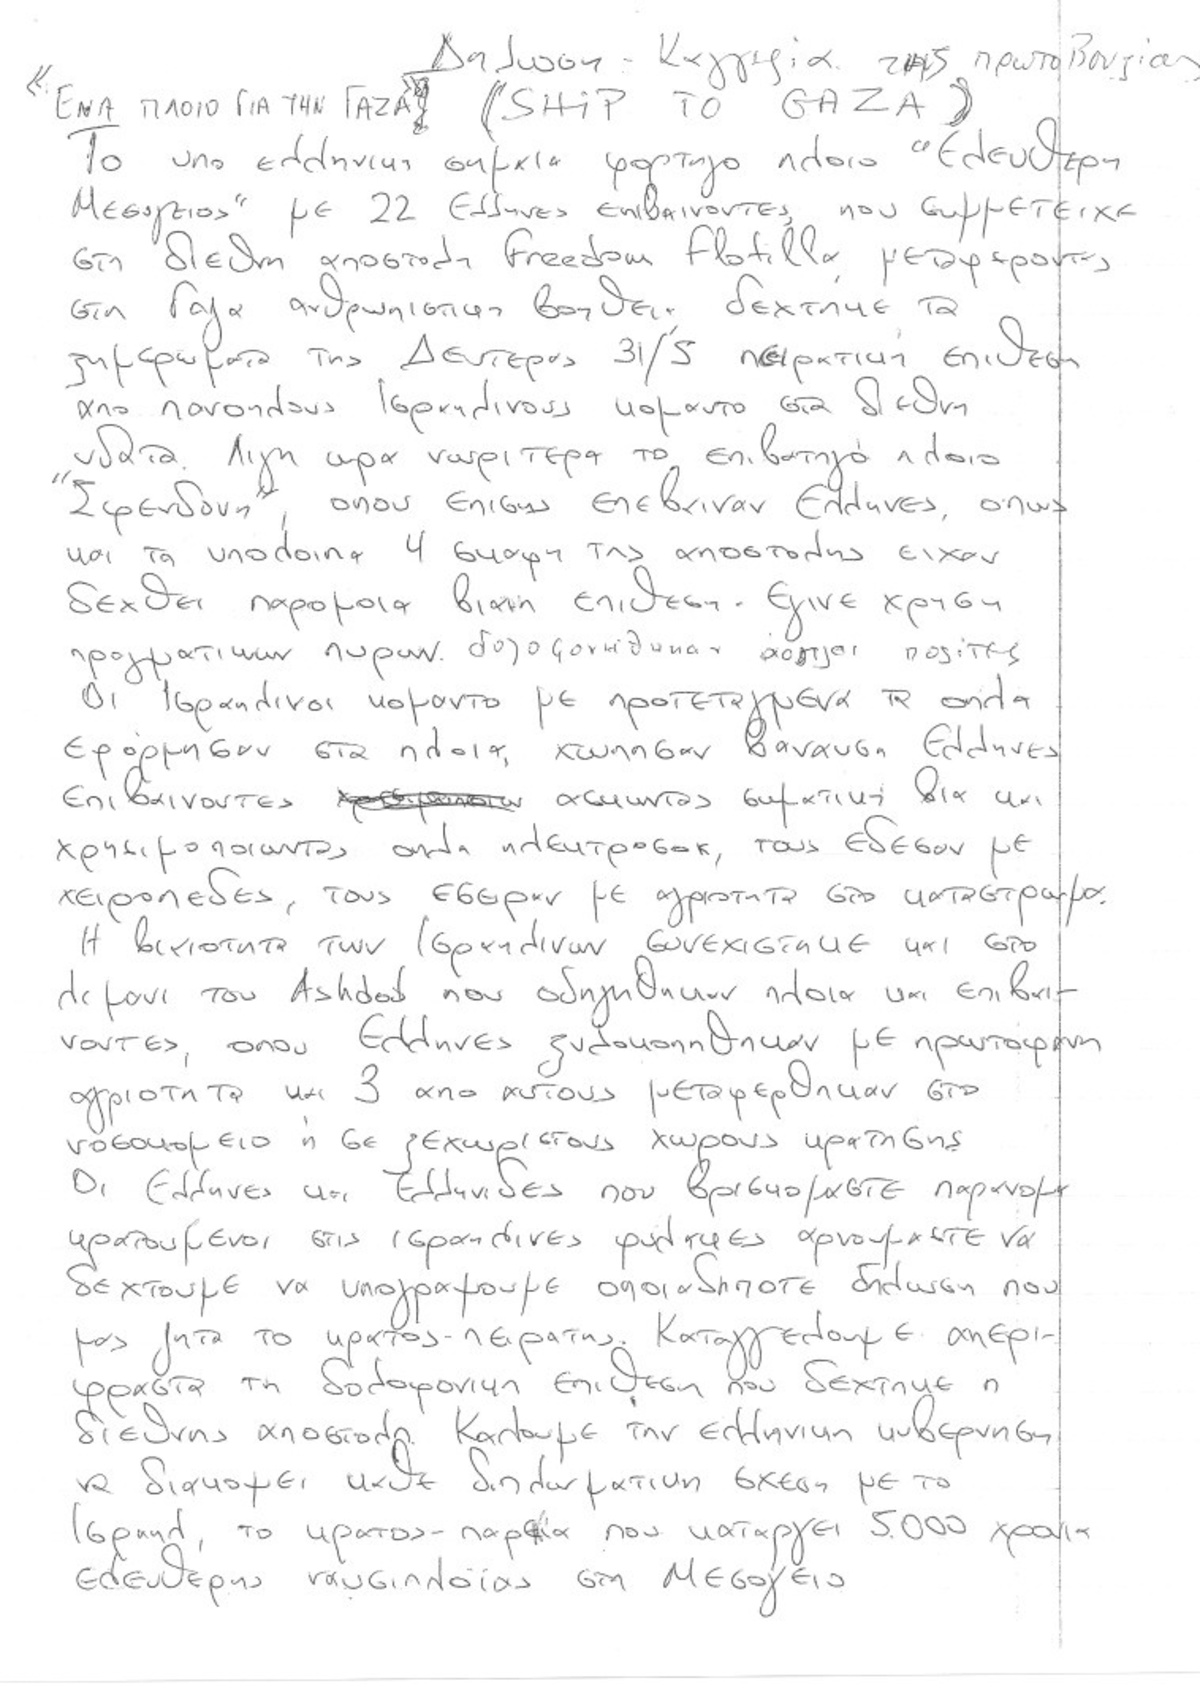 Δήλωση - Καγγελία της πρωτοβουλίας
"ΕΝΑ ΠΛΟΙΟ ΓΙΑ ΤΗΝ ΓΑΖΑ" (SHIP TO GAZA)
Το υπο ελληνικη σημαια φορτηγο πλοιο "Ελευθερη
Μεσογειος" με 22 Ελληνες επιβαινοντες, που συμμετειχε
στη διεθνη αποστολη Freedom Flotilla, μεταφεροντας
στη Γαζα ανθρωπιστικη βοηθεια, δεχτηκε τα
ξημερωματα της Δευτερας 31/5 πειρατικη επιθεση
απο πανοπλους Ισραηλινους κομαντο στα διεθνη
υδατα. Λιγη ωρα νωριτερα το επιβατηγό πλοιο
"Σφενδόνη", οπου επισης επεβαιναν Ελληνες, οπως
και τα υπολοιπα 4 σκαφη της αποστολης ειχαν
δεχθει παρομοια βιαιη επιθεση. Εγινε χρηση
πραγματικων πυρων. δολοφονήθηκαν άοπλοι πολίτες
Οι Ισραηλινοι κομαντο με προτεταγμενα τα οπλα
εφόρμησαν στα πλοια, χτυπησαν βαναυση Ελληνες
επιβαινοντες ασκωντας σωματική βια και
χρησιμοποιωντας οπλα ηλεκτροσοκ, τους εδεσαν με
χειροπεδες, τους εσειραν με αγριοτητα στο καταστρωμα.
Η βιαιοτητα των Ισραηλινων συνεχιστηκε και στο
λιμανι του Ashdod που οδηγηθηκαν πλοια και επιβαι-
νοντες, οπου Ελληνες ξυλοκοπηθηκαν με πρωτοφανη
αγριοτητα και 3 απο αυτους μεταφερθηκαν στο
νοσοκομειο ή σε ξεχωριστους χωρους κρατησης
Οι Ελληνες και Ελληνιδες που βρισκομαστε παρανομα
κρατουμενοι στις ισραηλινες φυλακες αρνουμαστε να
δεχτουμε να υπογραψουμε οποιαδηποτε δηλωση που
μας ζητα το κρατος-πειρατης. Καταγγελουμε απερι-
φραστα τη δολοφονικη επιθεση που δεχτηκε η
διεθνης αποστολη. Καλουμε την ελληνικη κυβερνηση
να διακοψει καθε διπλωματικη σχεση με το
Ισραηλ, το κρατος-παρεία που καταργει 5.000 χρονια
ελευθερης ναυσιπλοϊας στη Μεσογειο